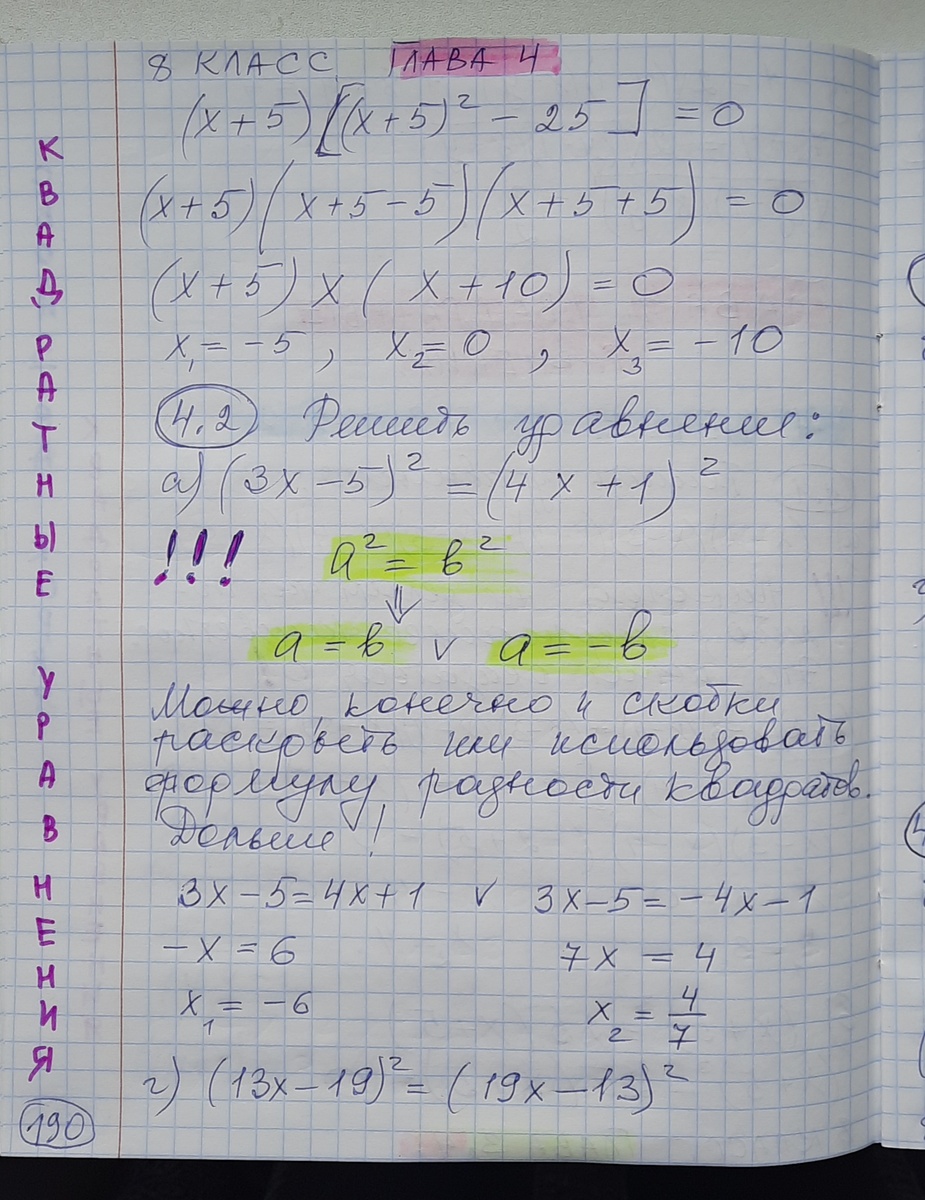 8 КЛАСС ГЛАВА 4
(x+5)[(x+5)² - 25] = 0
(x+5)(x+5-5)(x+5+5) = 0
(x+5) x (x+10) = 0
x₁ = -5, x₂ = 0, x₃ = -10
4.2 Решить уравнение:
а) (3x-5)² = (4x+1)²
!!! a² = b²
⇓
a = b ∨ a = -b
Можно, конечно и скобки
раскрыть или использовать
формулу разности квадратов.
Дольше!
3x-5=4x+1 ∨ 3x-5=-4x-1
-x = 6 7x = 4
x₁ = -6 x₂ = 4/7
г) (13x-19)² = (19x-13)²
КВАДРАТНЫЕ УРАВНЕНИЯ
190